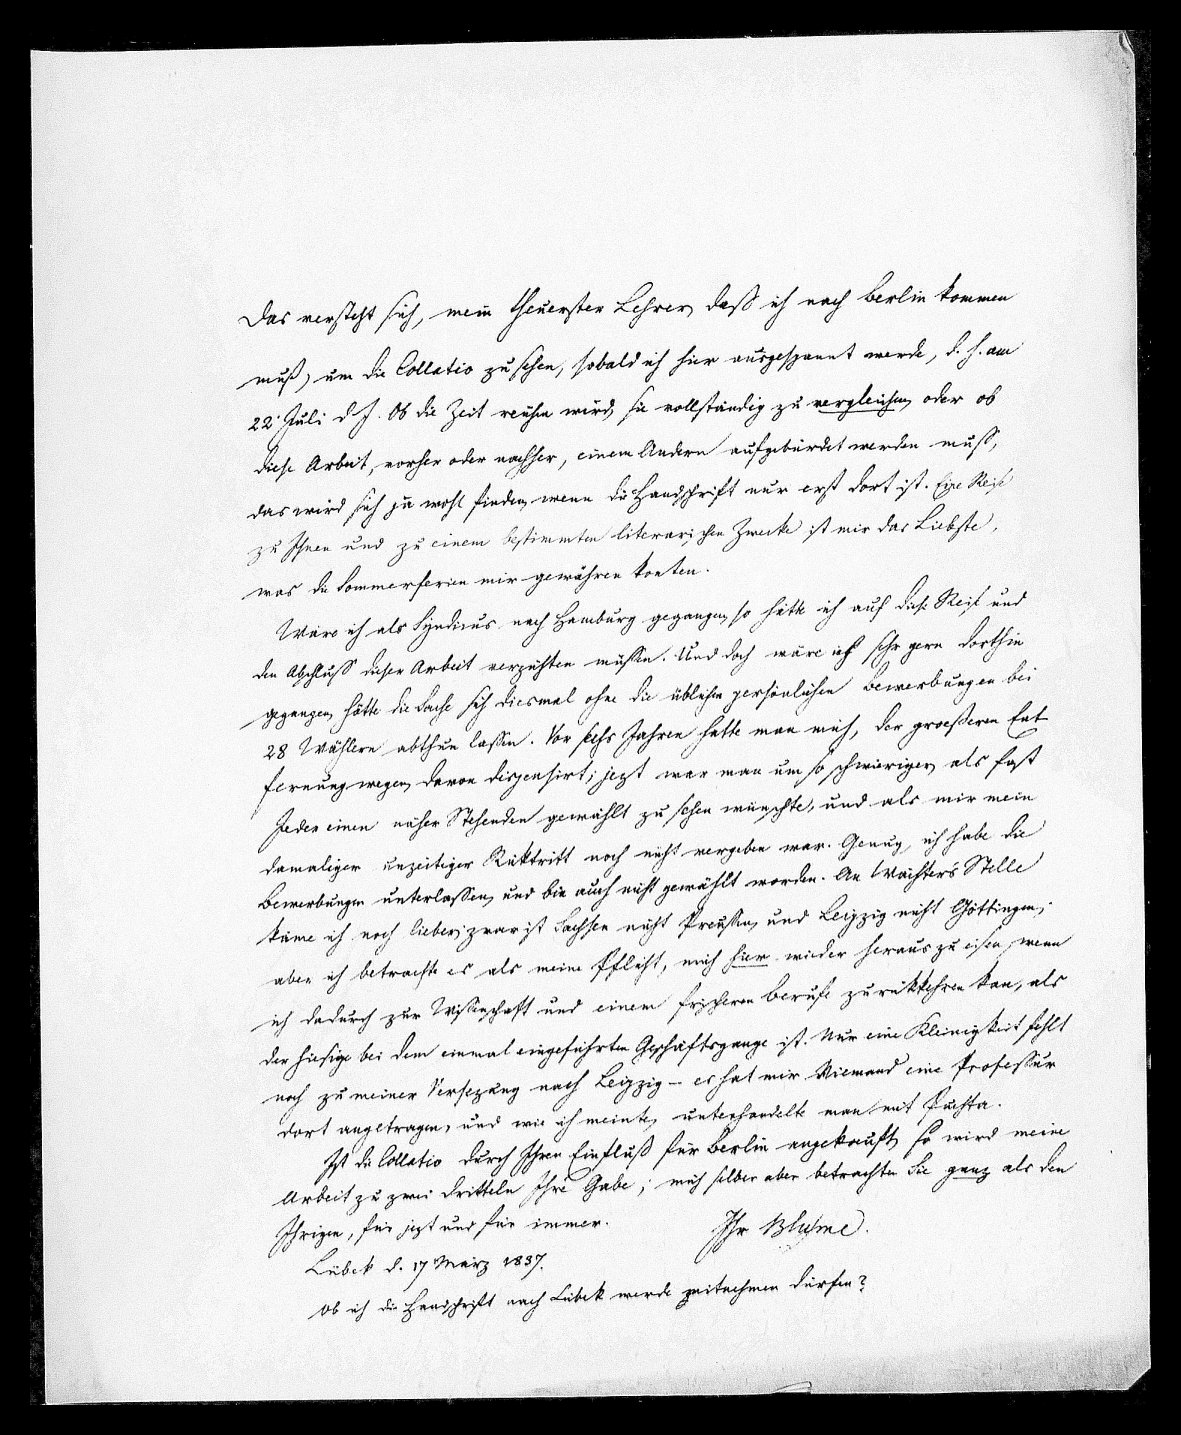 Das versteht sich, mein theuerster Lehrer, daß ich nach Berlin kommen
muß, um die Collatio zu sehen, sobald ich hier ausgespannt werde, d. h. am
22 Juli d. J. Ob die Zeit reichen wird, sie vollständig zu vergleichen, oder ob
diese Arbeit, vorher oder nachher, einem Andern aufgebürdet werden muss,
das wird sich ja wohl finden, wenn die Handschrift nur erst dort ist. Eine Reise
zu Ihnen und zu einem bestimmten literarischen Zwecke ist mir das Liebste,
was die Sommerferien mir gewähren konten.
Wäre ich als Syndicus nach Hamburg gegangen, so hätte ich auf diese Reise und
den Abschluss dieser Arbeit verzichten müssen. Und doch wäre ich sehr gern dorthin
gegangen, hätte die Sache sich diesmal ohne die üblichen persönlichen Bewerbungen bei
28 Wählern abthun lassen. Vor sechs Jahren hatte man mich, der groesseren Ent-
fernung wegen, davon dispensirt; jezt war man um so schwieriger, als fast
Jeder einen näher Stehenden gewählt zu sehen wünschte, und als mir mein
damaliger unzeitiger Rüktritt noch nicht vergeben war. Genug, ich habe die
Bewerbungen unterlassen, und bin auch nicht gewählt worden. An Wächter's Stelle
käme ich noch lieber; zwar ist Sachsen nicht Preussen, und Leipzig nicht Göttingen;
aber ich betrachte es als meine Pflicht, mich hier wieder heraus zu eisen, wenn
ich dadurch zur Wissenschaft und einem frischeren Berufe zurükkehren kan, als
der hiesige bei dem einmal eingeführten Geschäftsgange ist. Nur eine Kleinigkeit fehlt
noch zu meiner Versezung nach Leipzig – es hat mir Niemand eine Professur
dort angetragen, und wie ich meinte, unterhandelte man mit Puchta.
Ist die Collatio durch Ihren Einfluß für Berlin angekauft, so wird meine
Arbeit zu zwei Dritteln Ihre Gabe; mich selber aber betrachten Sie ganz als den
Ihrigen, für jezt und für immer. Ihr Bluhme.
Lübek d. 17 März 1837.
Ob ich die Handschrift nach Lübek werde mitnehmen dürfen?